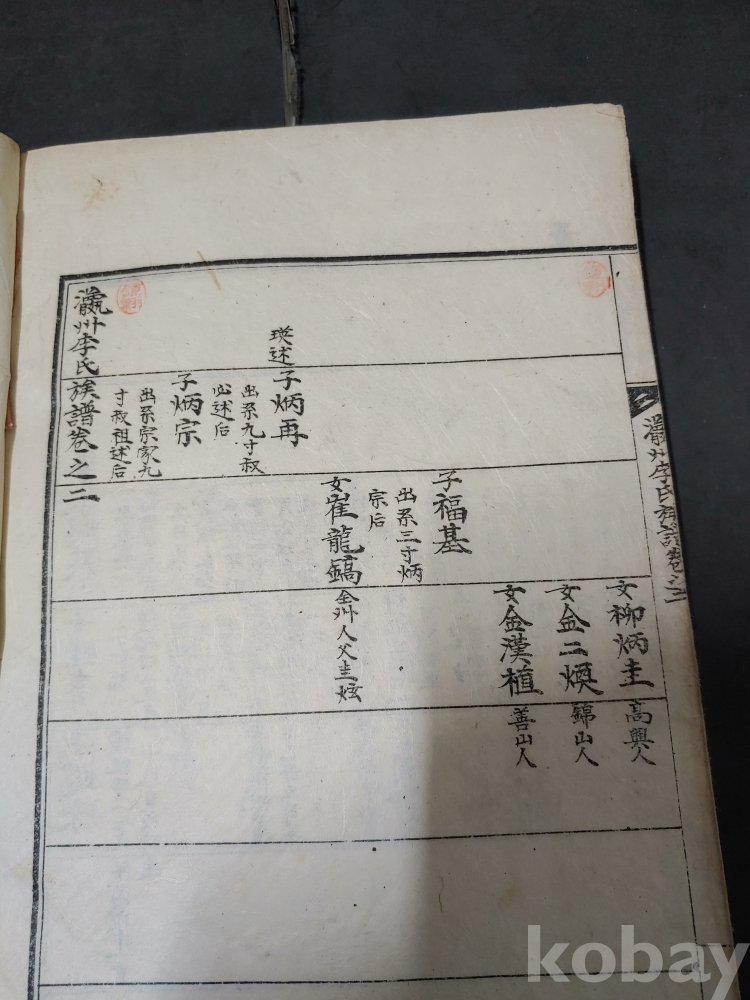 瀛州李氏族譜卷之二
女柳炳圭
高興人
女金二煥
錦山人
女金漢植
善山人
子福基
出系三寸炳
宗后
女崔龍鎬
全州人父圭炫
瑛述
子炳再
出系九寸叔
必述后
子炳宗
出系宗家九
寸叔祖述后
瀛州李氏族譜卷之二
kobay